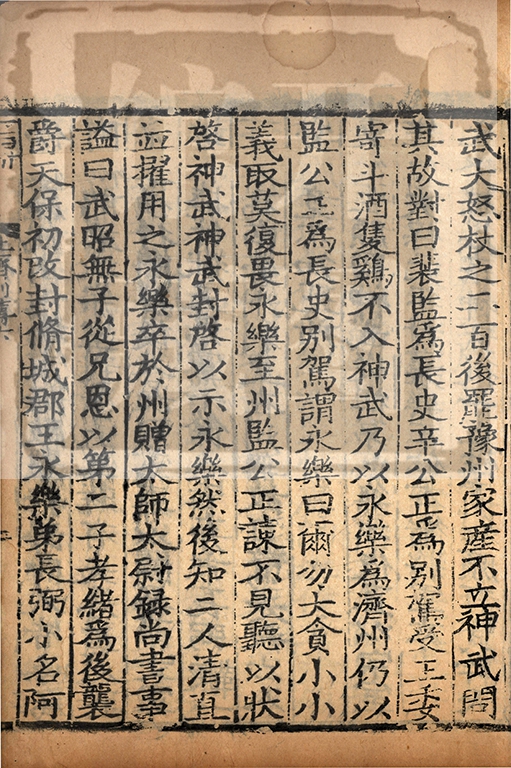 武大怒杖之二百後罷豫州家産不立神武問
其故對曰裴監為長史辛公正為別駕受王委
寄斗酒隻鷄不入神武乃以永樂為濟州仍以
監公正為長史別駕謂永樂曰爾勿大貪小小
義取莫復畏永樂至州監公正諫不見聽以狀
啓神武神武封啓以示永樂然後知二人清直
並擢用之永樂卒於州贈太師太尉録尚書事
謚曰武昭無子從兄恩以第二子孝緒為後襲
爵天保初改封脩城郡王永樂弟長弼小名阿